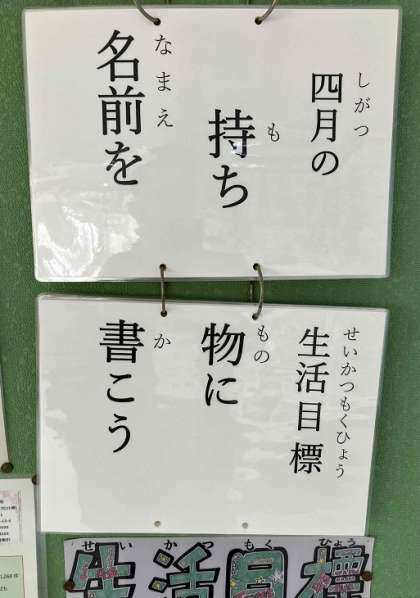 四月の
しがつ
持ち
も
名前を
なまえ
生活目標
せいかつもくひょう
物に
もの
書こう
か
せいかつもくひょう
生活目標